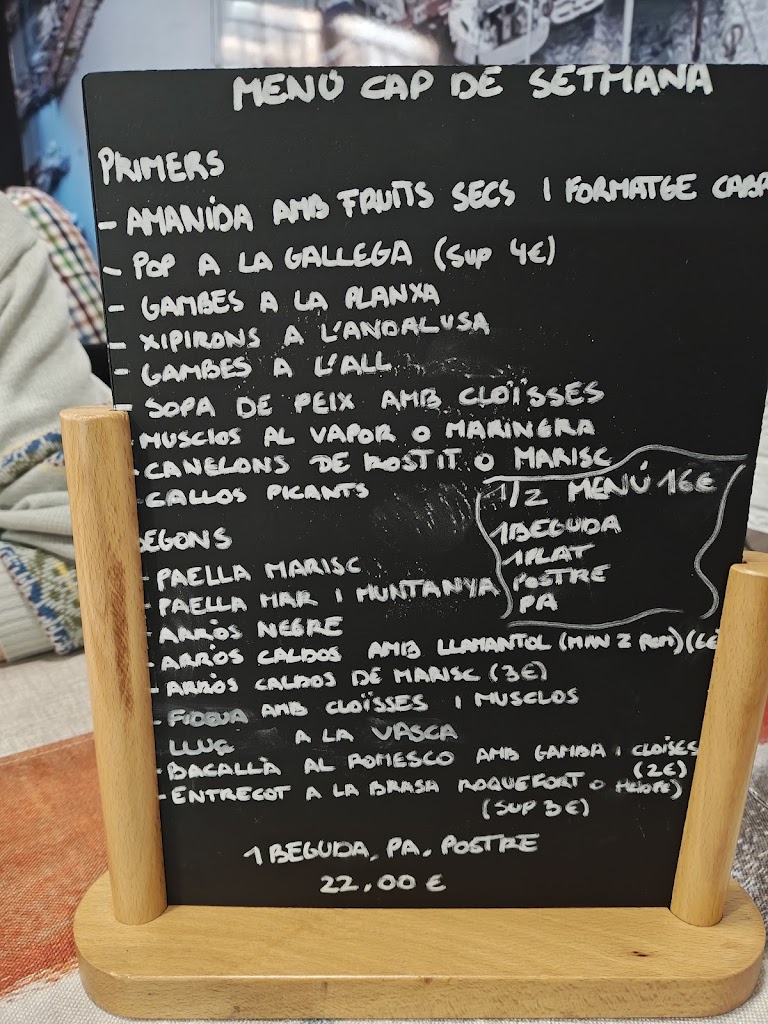 MENÚ CAP DE SETMANA
PRIMERS
- AMANIDA AMB FRUITS SECS I FORMATGE CABR
- POP A LA GALLEGA (SUP 4€)
- GAMBES A LA PLANXA
- XIPIRONS A L'ANDALUSA
- GAMBES A L'ALL
- SOPA DE PEIX AMB CLOÏSSES
- MUSCLOS AL VAPOR O MARINERA
- CANELONS DE ROSTIT O MARISC
- CALLOS PICANTS
1/2 MENÚ 16€
1 BEGUDA
1 PLAT
POSTRE
PA
SEGONS
- PAELLA MARISC
- PAELLA MAR I MUNTANYA
- ARRÒS NEGRE
- ARRÒS CALDOS AMB LLAMANTOL (MAN 2 PERS) (6€
- ARRÒS CALDOS DE MARISC (3€)
- FIDEUA AMB CLOÏSSES I MUSCLOS
- LLUÇ A LA VASCA
- BACALLÀ AL ROMESCO AMB GAMBA I CLOÏSES
(2€)
- ENTRECOT A LA BRASA ROQUEFORT O
(SUP 3€)
1 BEGUDA, PA, POSTRE
22,00 €